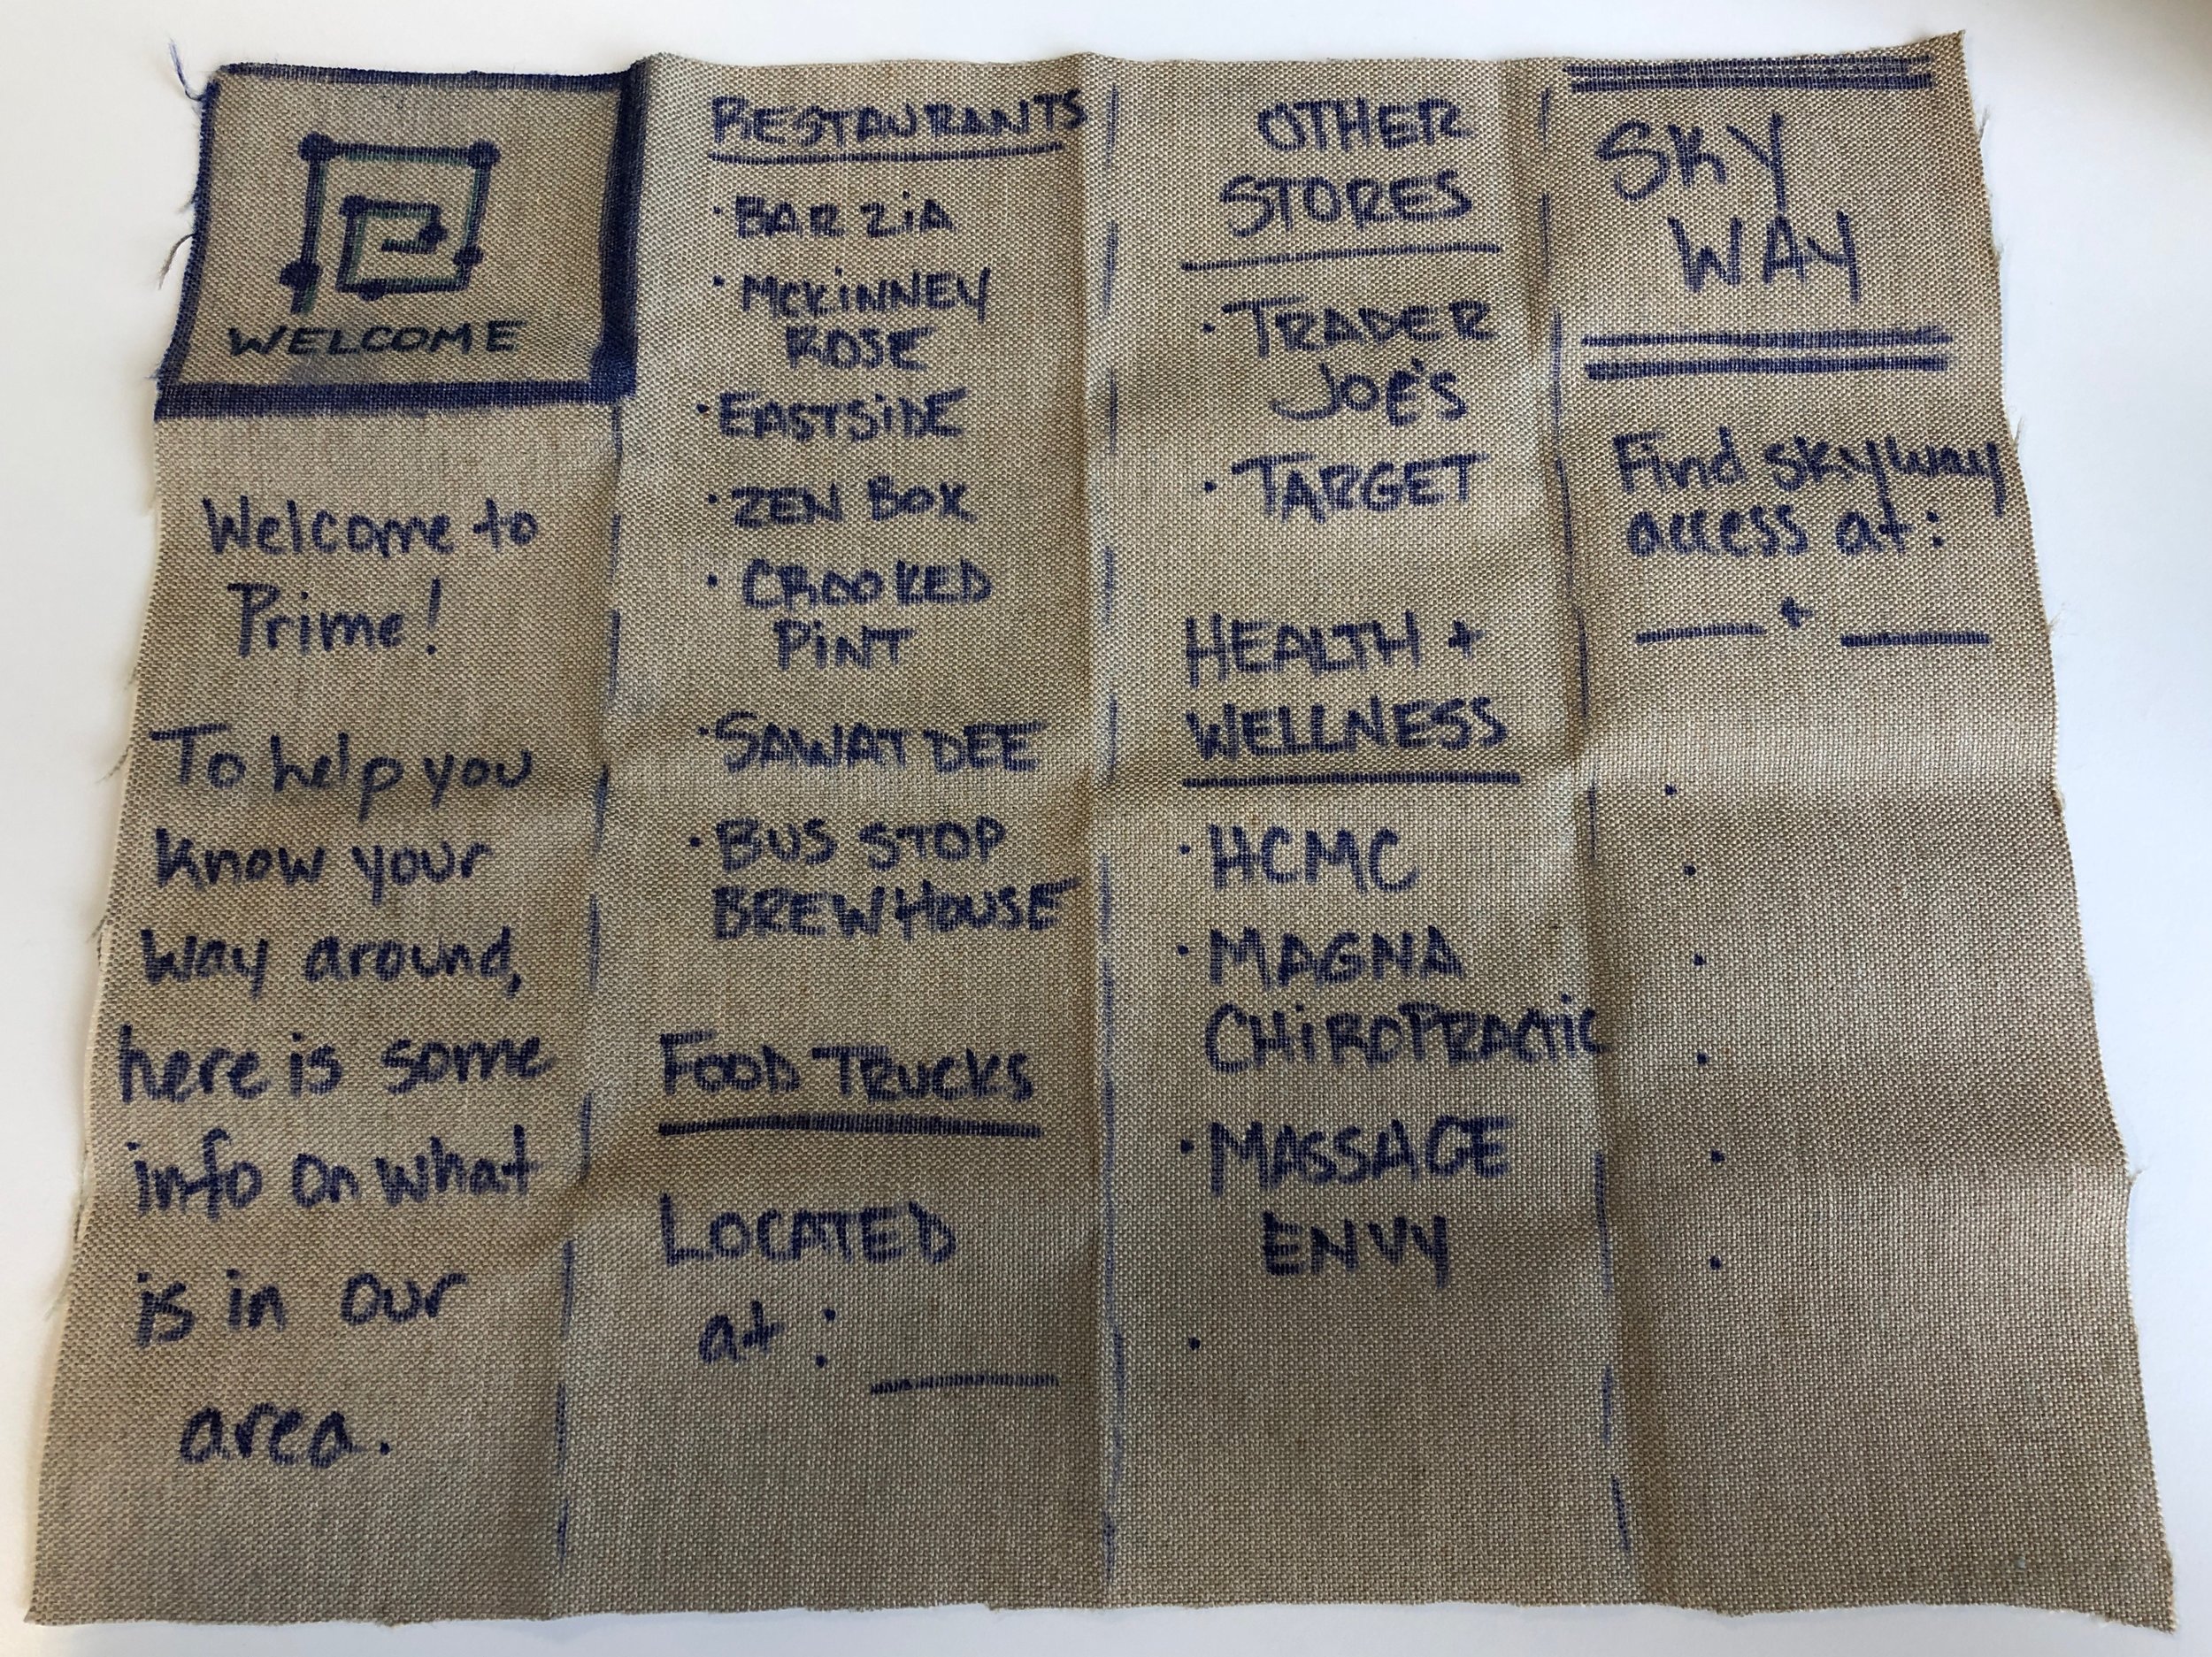 WELCOME
Welcome to
Prime!
To help you
know your
way around,
here is some
info on what
is in our
area.
RESTAURANTS
· BAR ZiA
· MCKiNNEY
ROSE
· EASTSiDE
· ZEN BOX
· CROOKED
PiNT
· SAWATDEE
· BUS STOP
BREWHOUSE
FOOD TRUCKS
LOCATED
at: ____
OTHER
STORES
· TRADER
JOE'S
· TARGET
HEALTH +
WELLNESS
· HCMC
· MAGNA
CHiROPRACTiC
· MASSAGE
ENVY
·
SKY
WAY
Find skyway
access at:
____ + ____
·
·
·
·
·
·